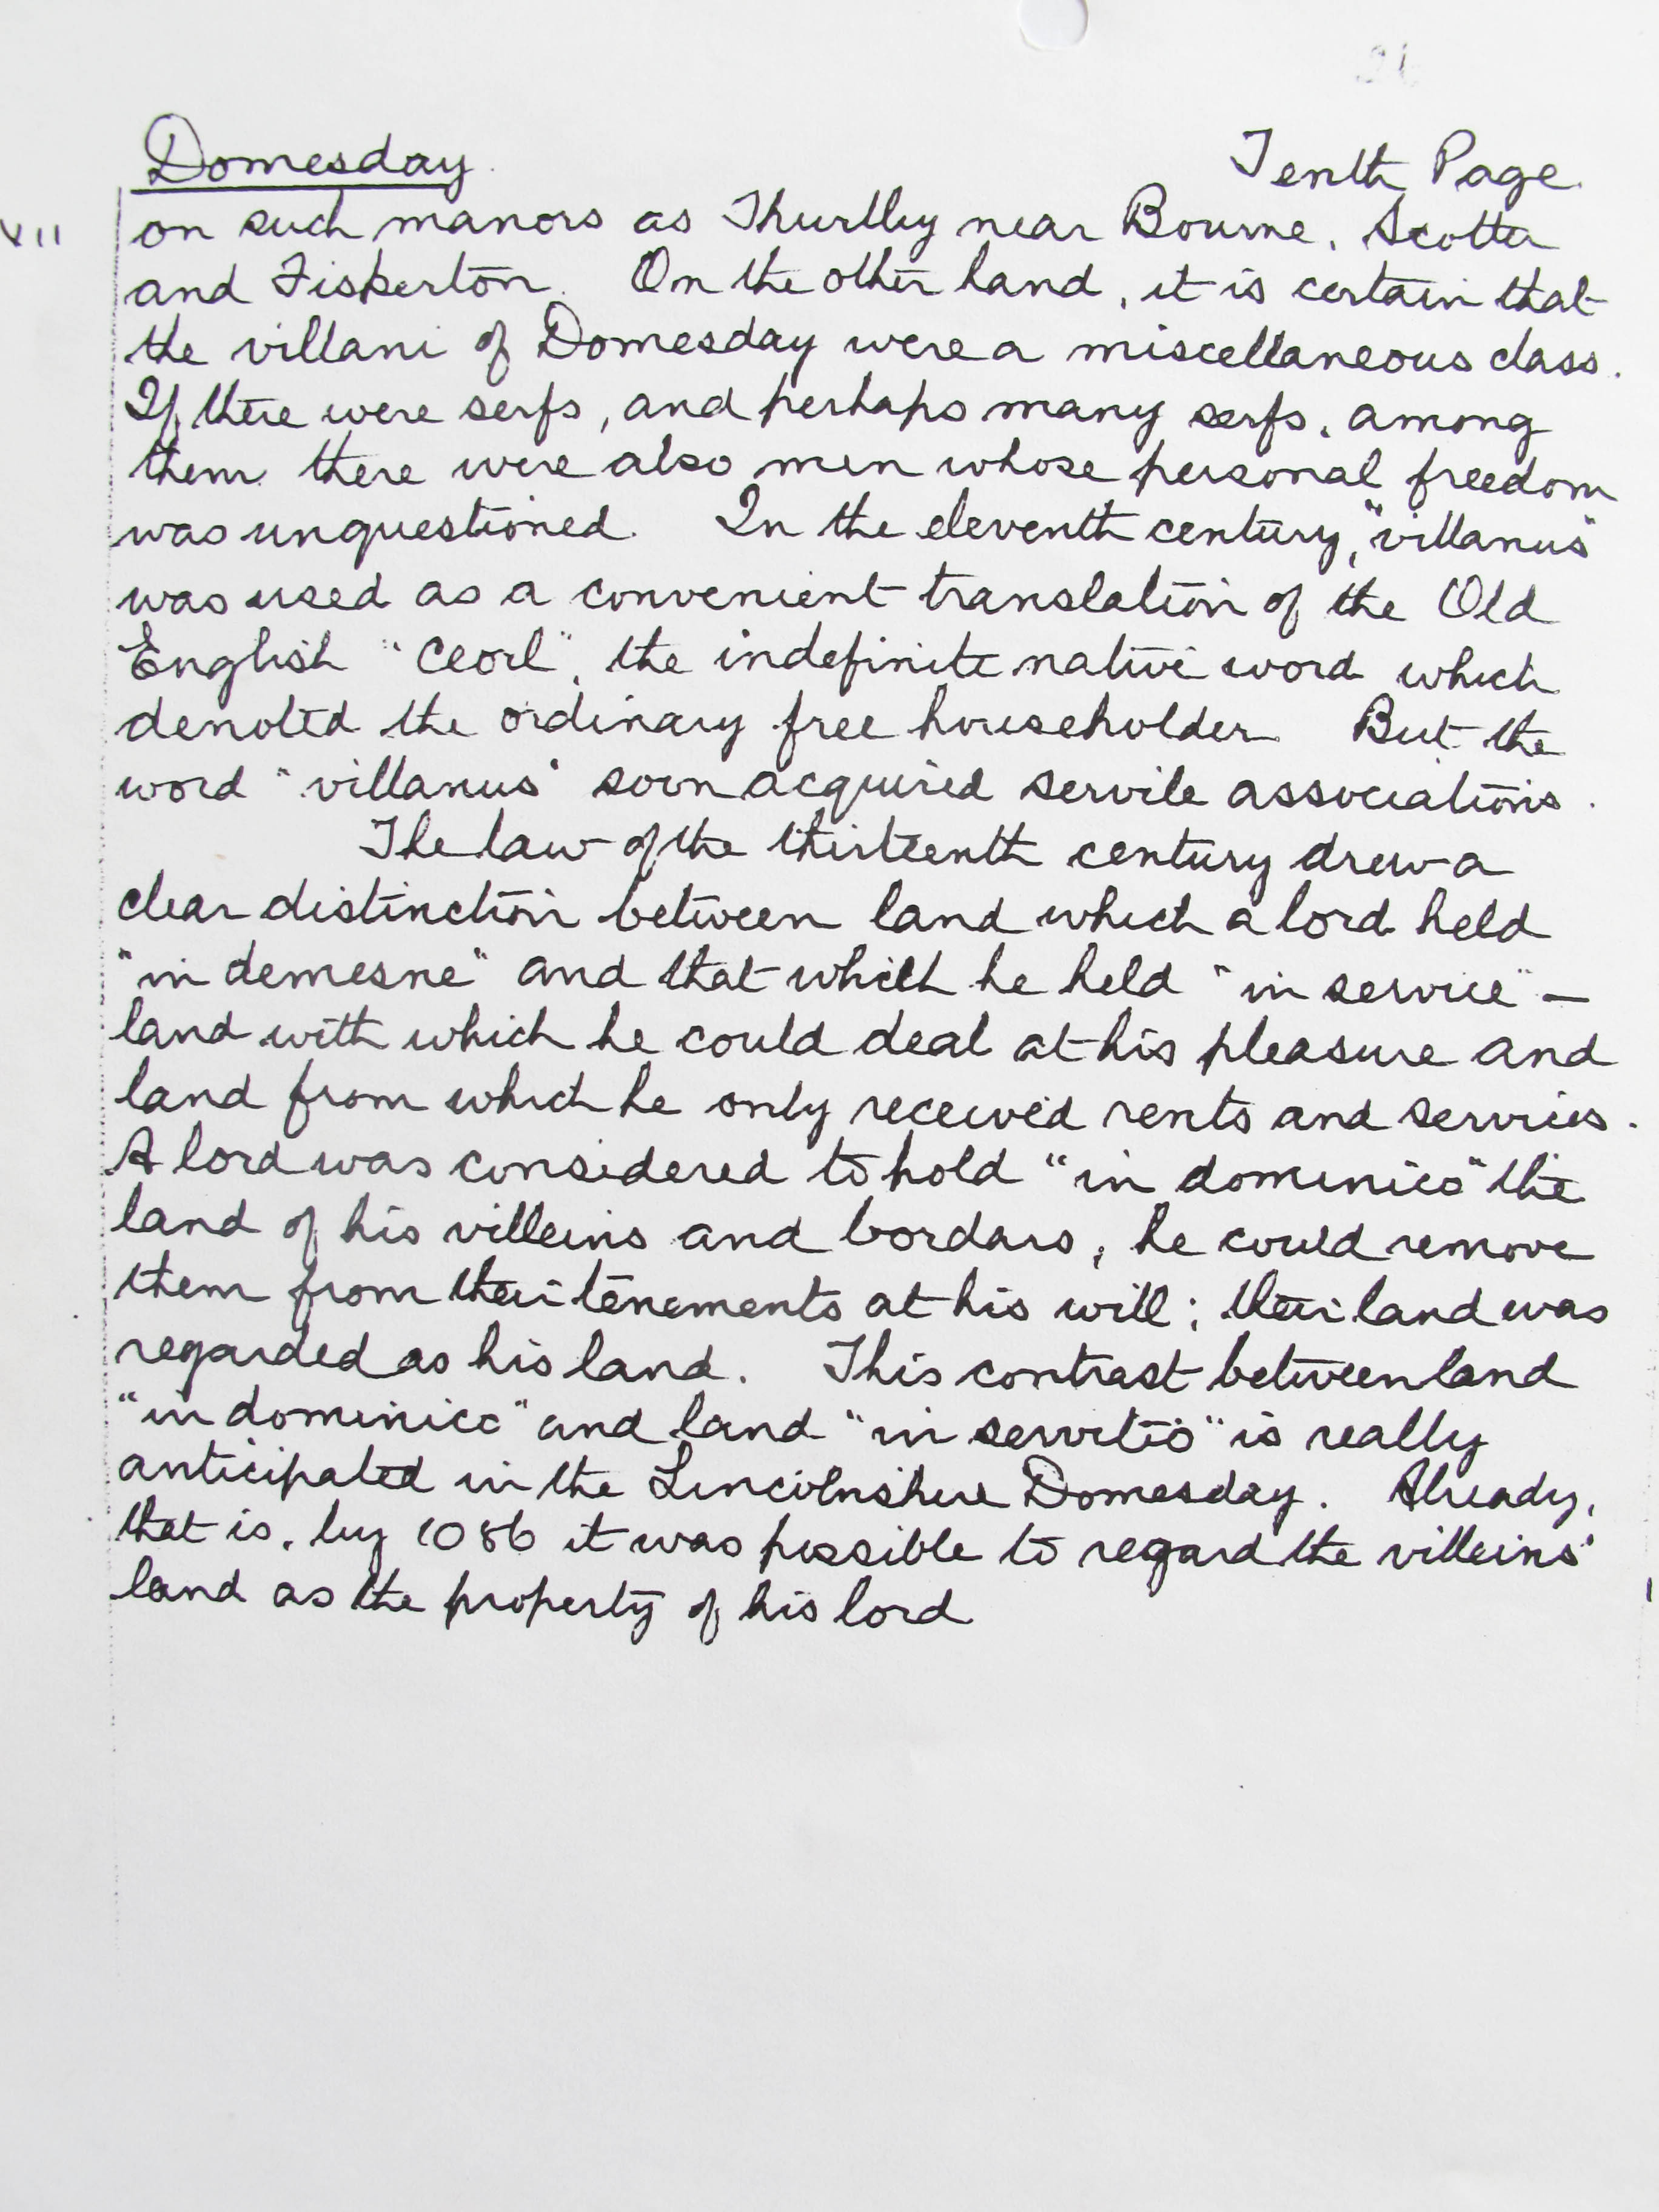 Domesday Tenth Page.
XII
on such manors as Thurlby near Bourne, Scotter
and Fiskerton. On the other hand, it is certain that
the villani of Domesday were a miscellaneous class.
If there were serfs, and perhaps many serfs, among
them there were also men whose personal freedom
was unquestioned. In the eleventh century, "villanus"
was used as a convenient translation of the Old
English "Ceorl", the indefinite native word which
denoted the ordinary free householder. But the
word "villanus" soon acquired servile associations.
The law of the thirteenth century drew a
clear distinction between land which a lord held
"in demesne" and that which he held "in service" –
land with which he could deal at his pleasure and
land from which he only received rents and services.
A lord was considered to hold "in dominico" the
land of his villeins and bordars, he could remove
them from their tenements at his will; their land was
regarded as his land. This contrast between land
"in dominico" and land "in servitio" is really
anticipated in the Lincolnshire Domesday. Already,
that is, by 1086 it was possible to regard the villeins'
land as the property of his lord